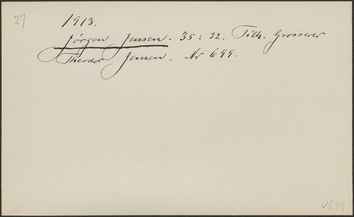 27
1913.
Jörgen Jensen. 35:32. Tilh. Grosserer
Theodor Jensen. Nr 699.
V699